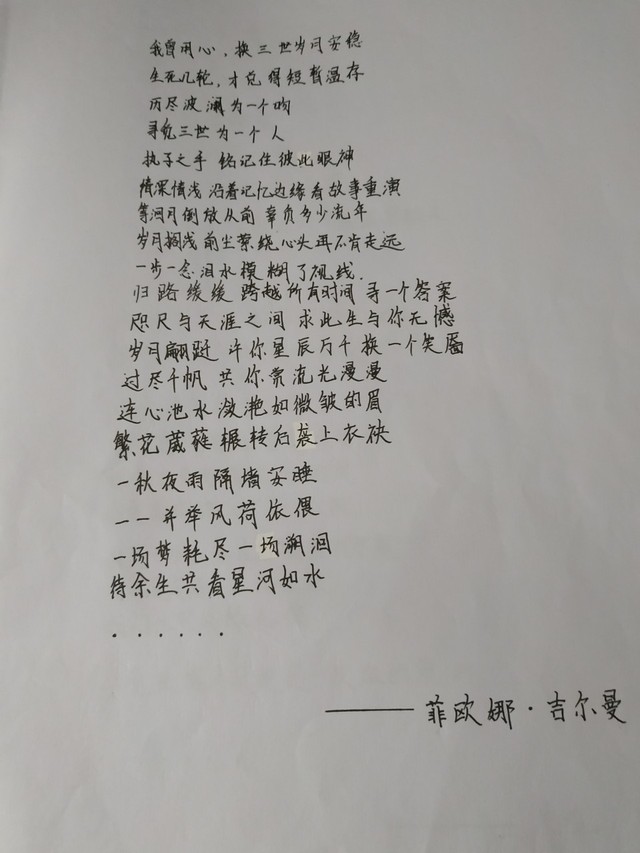 我曾用心，换三世岁月安稳
生死几轮，才兑得短暂温存
历尽波澜为一个吻
寻觅三世为一个人
执子之手 铭记住彼此眼神
情深情浅 沿着记忆边缘看故事重演
等洄月倒放从前 辜负多少流年
岁月搁浅 前尘萦绕心头再不肯走远
一步一念泪水模糊了视线.
归路缓缓 跨越所有时间 寻一个答案
咫尺与天涯之间 求此生与你无憾
岁月翩跹 许你星辰万千换一个笑靥
过尽千帆 共你赏流光漫漫
连心池水潋滟如微皱的眉
繁花葳蕤辗转后袭上衣袂
一秋夜雨隔墙安睡
一一并举风荷依偎
一场梦耗尽一场溯洄
待余生共看星河如水
. . . . . .
——菲欧娜·吉尔曼